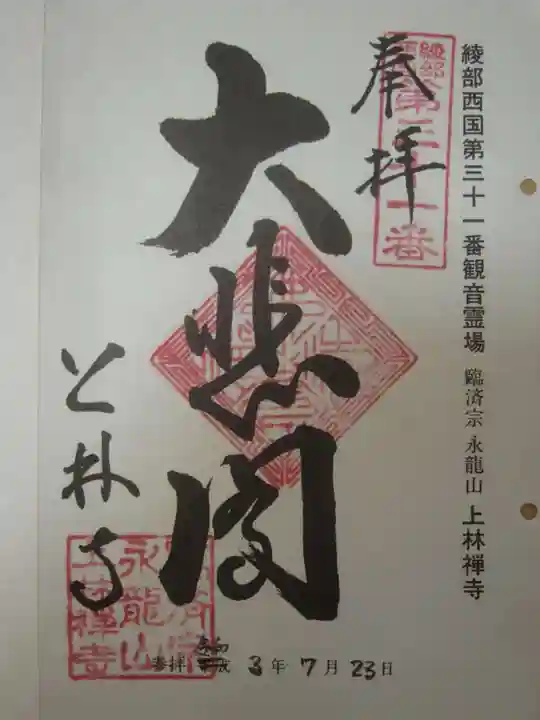 綾部西国第三十一番観音霊場 臨済宗 永龍山 上林禅寺
奉拝
綾部西国
第三十一番
大悲閣
上林寺
永龍山
上林禅寺
参拝 令和 3年 7月 23日